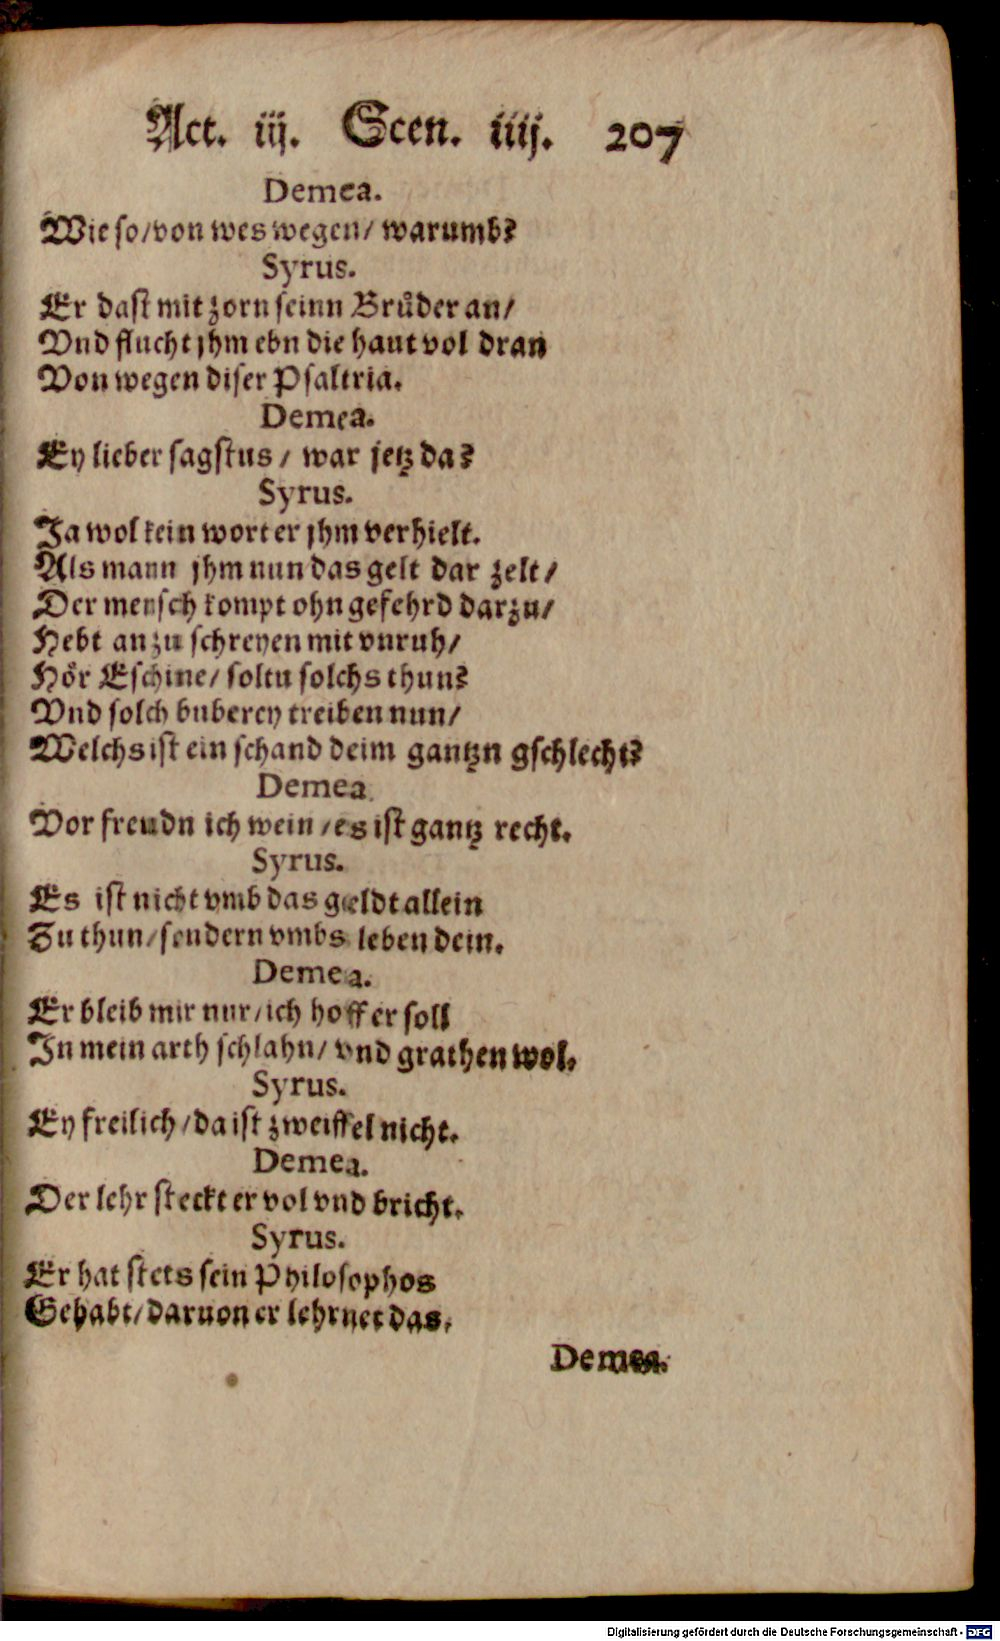 Act. iij. Scen. iiij. 207
Demea.
Wie so/von wes wegen/ warumb?
Syrus.
Er dast mit zorn seinn Brůder an/
Vnd flucht jhm ebn die haut vol dran
Von wegen diser Psaltria.
Demea.
Ey lieber sagstus/ war jetz da?
Syrus.
Ja wol kein wort er jhm verhielt.
Als mann jhm nun das gelt dar zelt/
Der mensch kompt ohn gefehrd darzu/
Hebt an zu schreyen mit vnruh/
Hör Eschine/ soltu solchs thun?
Vnd solch buberey treiben nun/
Welchs ist ein schand deim gantzn gschlecht?
Demea.
Vor freudn ich wein/es ist gantz recht.
Syrus.
Es ist nicht vmb das geldt allein
Zu thun/sondern vmbs leben dein.
Demea.
Er bleib mir nur/ich hoff er soll
In mein arth schlahn/ vnd grathen wol.
Syrus.
Ey freilich/da ist zweiffel nicht.
Demea.
Der lehr steckt er vol vnd bricht.
Syrus.
Er hat stets sein Philosophos
Gehabt/daruon er lehrnet das.
Demea.
Digitalisierung gefördert durch die Deutsche Forschungsgemeinschaft - DFG